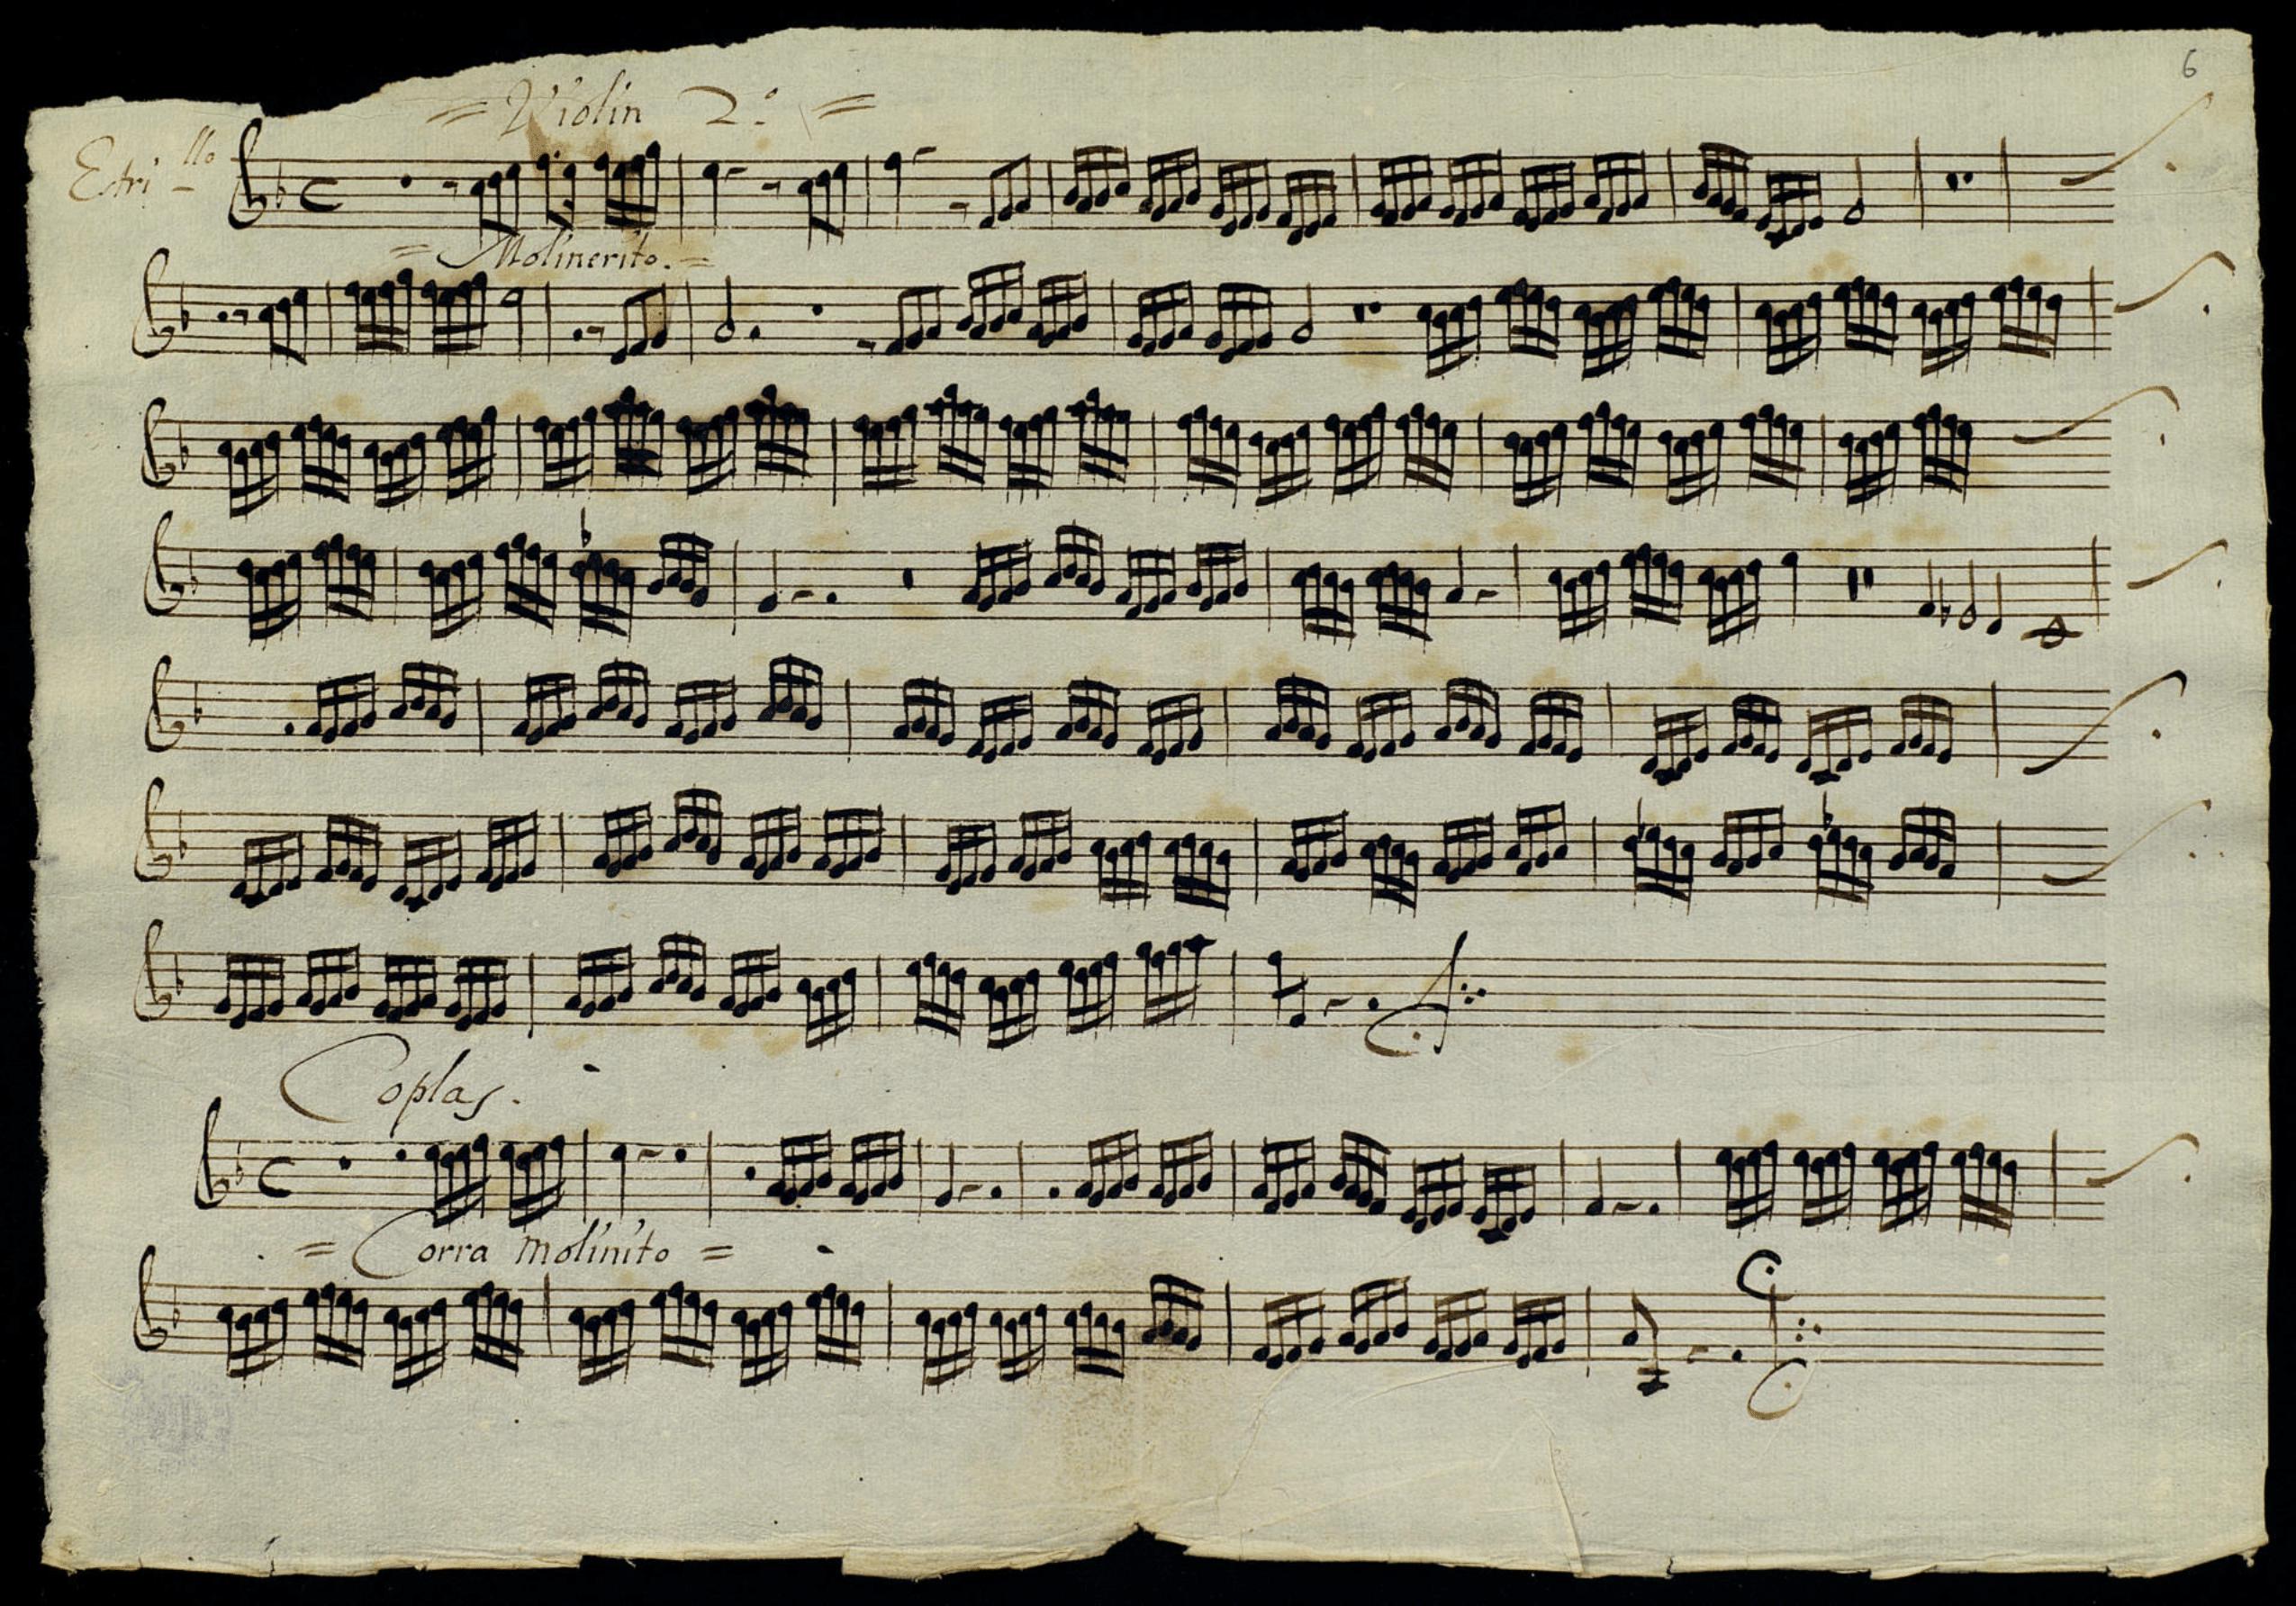 6
= Violin 2.º =
Estri-llo
= Molinerito. =
Coplas.
= Corra molinito =